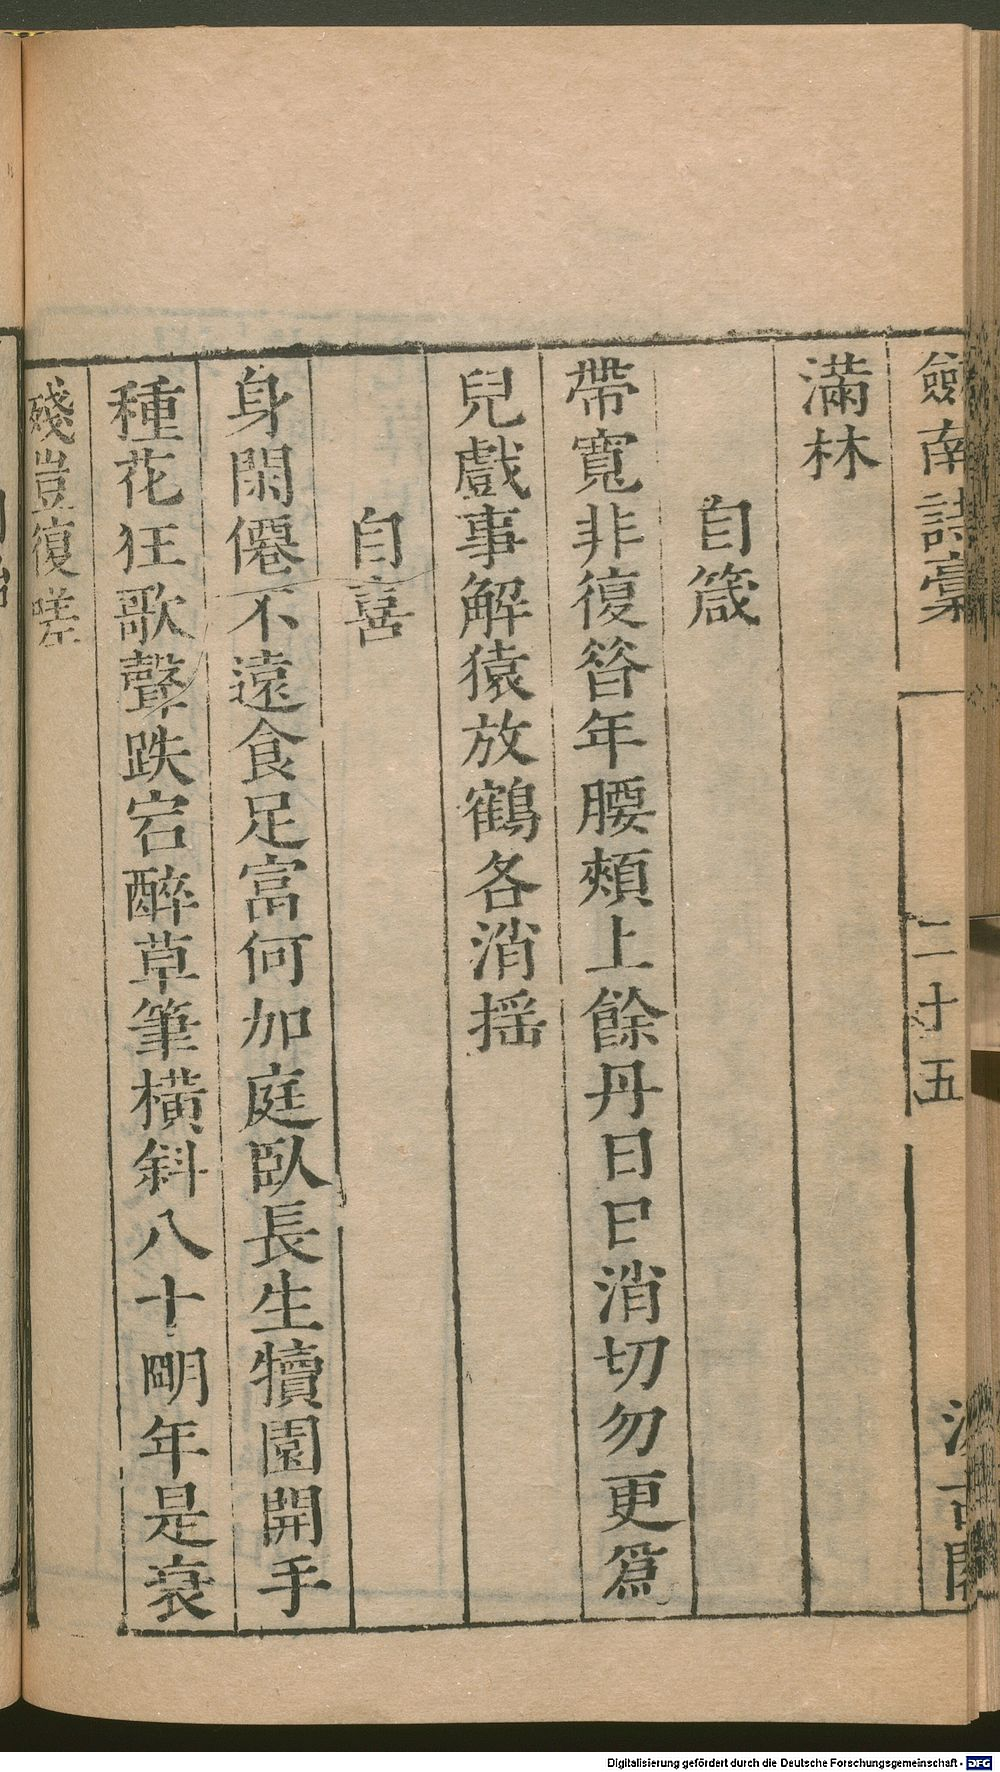 劍南詩稾
二十五
汲古閣
滿林
自箴
帶寬非復昝年腰頰上餘丹日日消切勿更爲
兒戲事解猿放鶴各消揺
自喜
身閑僊不遠食足富何加庭臥長生犢園開手
種花狂歌聲跌宕醉草筆橫斜八十明年是衰
殘豈復嗟
Digitalisierung gefördert durch die Deutsche Forschungsgemeinschaft - DFG